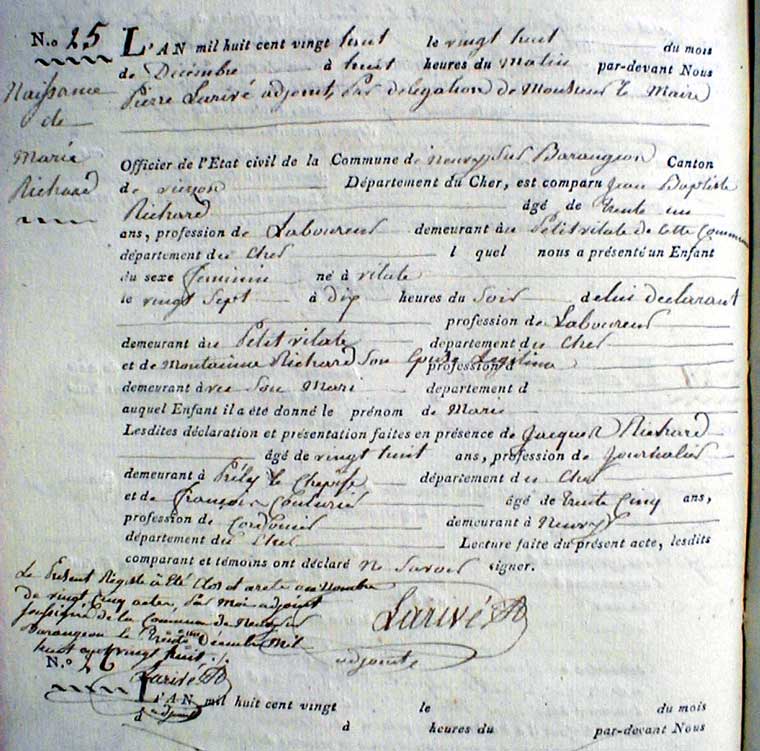 N.o 25
Naissance
de
Marie
Richard
L'AN mil huit cent vingt huit le vingt huit du mois
de Décembre à huit heures du Matin par-devant Nous
Pierre Larivé adjoint, par délégation de Monsieur le Maire
Officier de l'Etat civil de la Commune de neuvy sur Barangeon Canton
de vierzon Département du Cher, est comparu Jean Baptiste
Richard âgé de trente un
ans, profession de Laboureur demeurant au Petit vilate de cette Commune
département du Cher l quel nous a présenté un Enfant
du sexe féminin né à vilate
le vingt Sept à dix heures du Soir de lui déclarant
profession de Laboureur
demeurant au Petit vilate département du Cher
et de Richard Son Epouse Legitime profession d
demeurant avec Son Mari département d
auquel Enfant il a été donné le prénom de Marie
Lesdites déclaration et présentation faites en présence de Jacques Richard
âgé de vingt huit ans, profession de Journalier
demeurant à Prély le Chetif département du Cher
et de François Couturier âgé de trente Cinq ans,
profession de Cordonier demeurant à Neuvy
département du Cher Lecture faite du présent acte, lesdits
comparant et témoins ont déclaré ne Savoir signer.
Le Présent Registre à Eté Clos et areté au Nombre
de vingt Cinq actes, par Moi adjoint
de la Commune de Neuvy sur
Barangeon le Décembre Mil
huit cent vingt huit ./.
Larivé
adjoint
Larivé
adjoint
N.o 26
L'AN mil huit cent vingt le du mois
d à heures du par-devant Nous